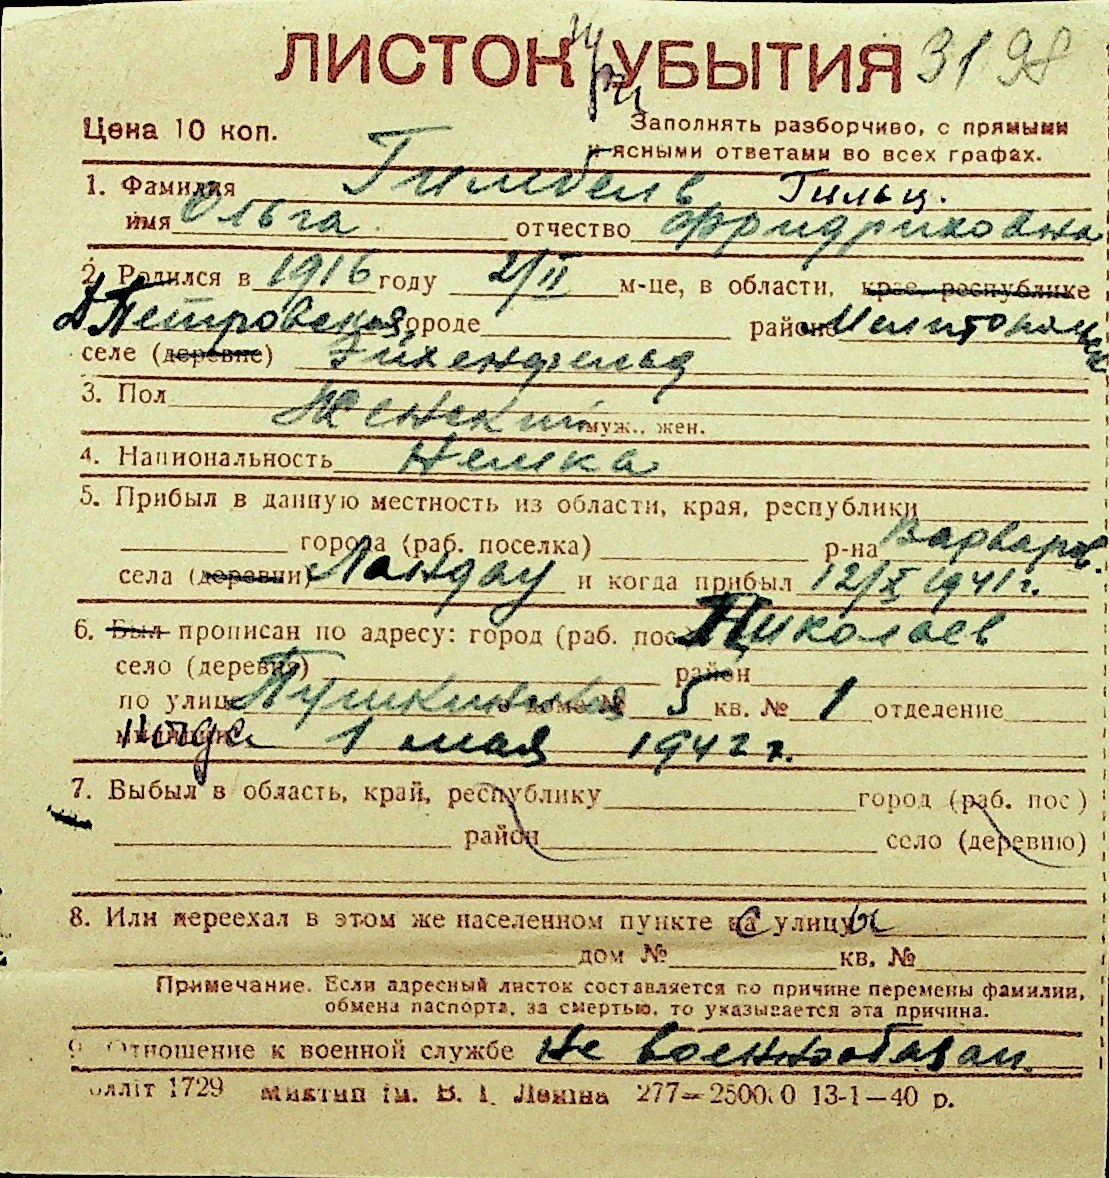 ЛИСТОК УБЫТИЯ 3198
Цена 10 коп.
Заполнять разборчиво, с прямыми
и ясными ответами во всех графах.
1. Фамилия Гимбель Гильц.
имя Ольга отчество Фридриховна
2. Родился в 1916 году 2/II м-це, в области, крае, республике
Д.Петровская, городе районе Мелитопольск
селе (деревне) Эйхенфельд
3. Пол Женский муж., жен.
4. Национальность Немка
5. Прибыл в данную местность из области, края, республики
города (раб. поселка) р-на Варваров.
села (деревни) Ландау и когда прибыл 12/X 1941 г.
6. Был прописан по адресу: город (раб. пос Николаев
село (деревня) район
по улице Пушкинская в доме № 5 кв. № 1 отделение
милиции когда 1 мая 1942 г.
7. Выбыл в область, край, республику город (раб. пос)
район село (деревню)
8. Или переехал в этом же населенном пункте на с улицу ы
дом № кв. №
Примечание. Если адресный листок составляется по причине перемены фамилии,
обмена паспорта, за смертью, то указывается эта причина.
9. Отношение к военной службе не военнообязан.
олліт 1729 Миктип ім. В. І. Леніна 277—25000 13-1—40 р.